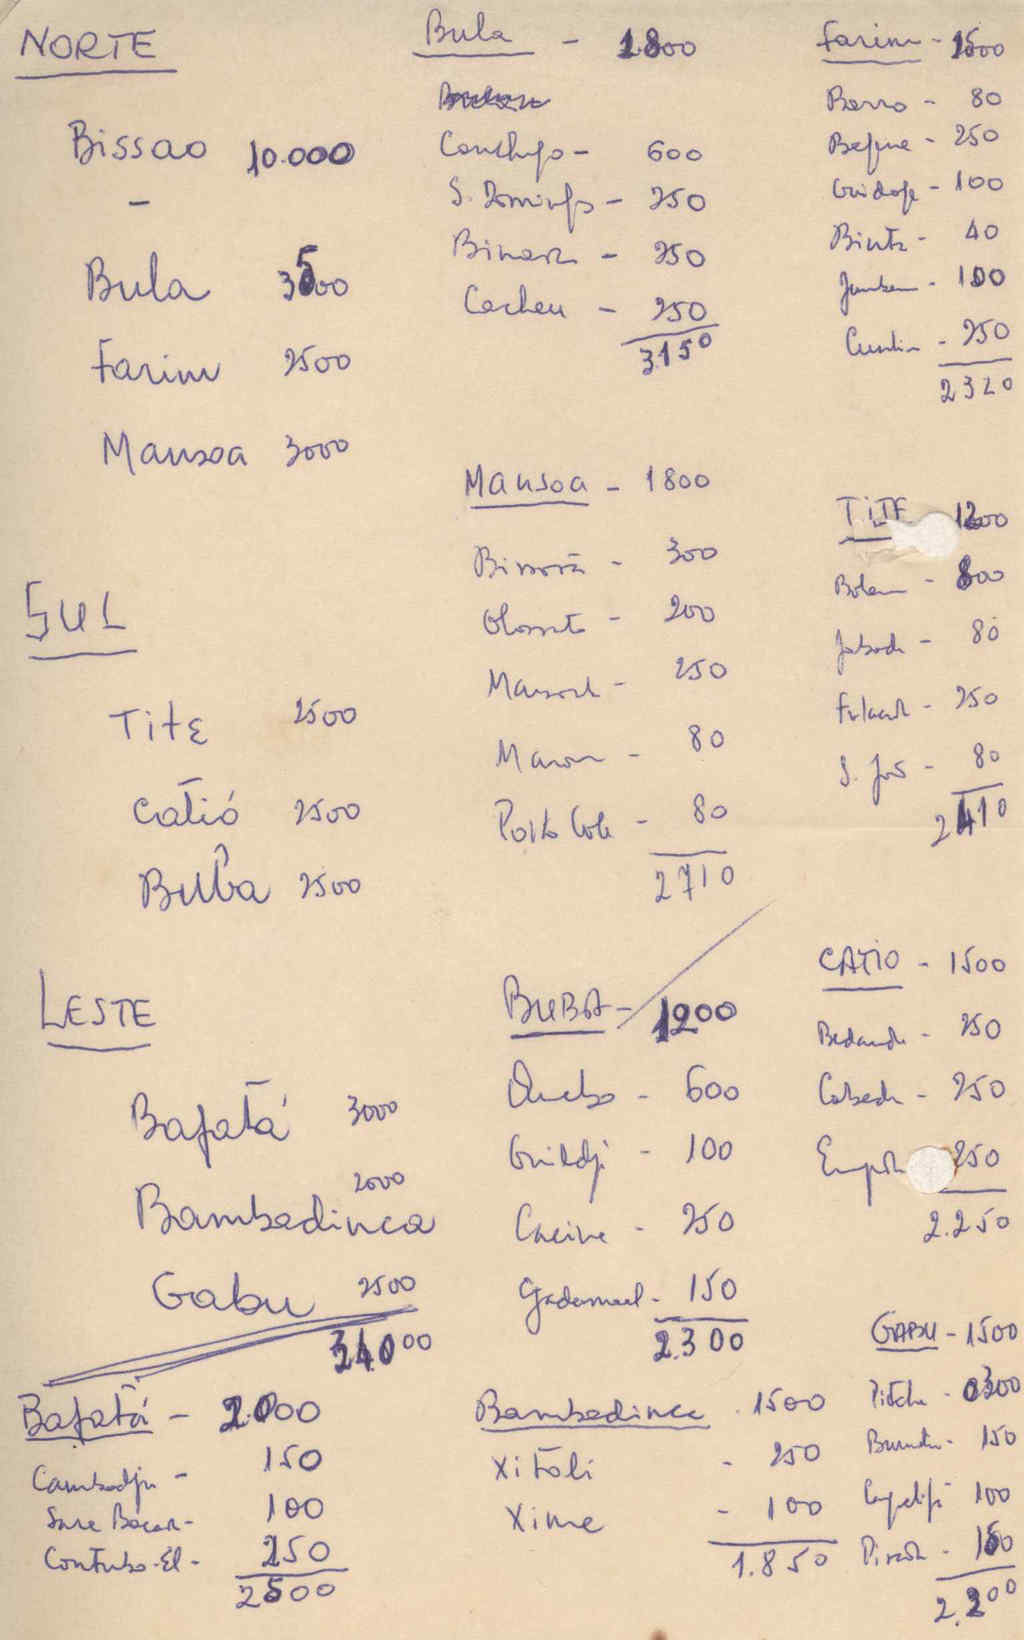 NORTE
Bissao 10.000
-
Bula 3500
Farim 2500
Mansoa 3000
SUL
Tite 2500
Catió 2500
Buba 2500
LESTE
Bafatá 3000
Bambadinca 2000
Gabu 2500
34.000
Bafatá - 2.000
Cambadju - 150
Sare Bacar - 100
Contubo-El - 250
2500
Bula - 1800
Canchungo - 600
S. Domingos - 250
Binar - 250
Cacheu - 250
3.150
Mansoa - 1800
Bissorã - 300
Olossato - 200
Mansabá - 250
80
Porto Gole - 80
2710
BUBA - 1200
Quebo - 600
Guiledje - 100
Cacine - 250
Gadamael - 150
2.300
Bambadinca 1500
Xitoli - 250
Xime - 100
1.850
Farim - 1500
Barro - 80
Begene - 250
Guidage - 100
Binta - 40
Jumbem - 100
Cuntim - 250
2320
TITE 1200
Bolama - 800
Jabadá - 80
Fulacunda - 250
S. João - 80
2410
CATIO - 1500
Bedanda - 250
Cabedú - 250
Empada 250
2.250
GABU - 1500
Pitche - 300
Buruntuma - 150
100
Pirada - 150
2.200